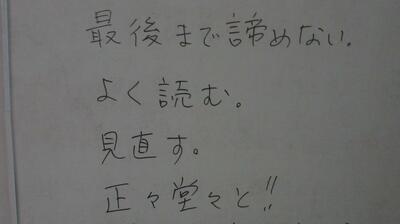 最後まで諦めない。
よく読む。
見直す。
正々堂々と!!